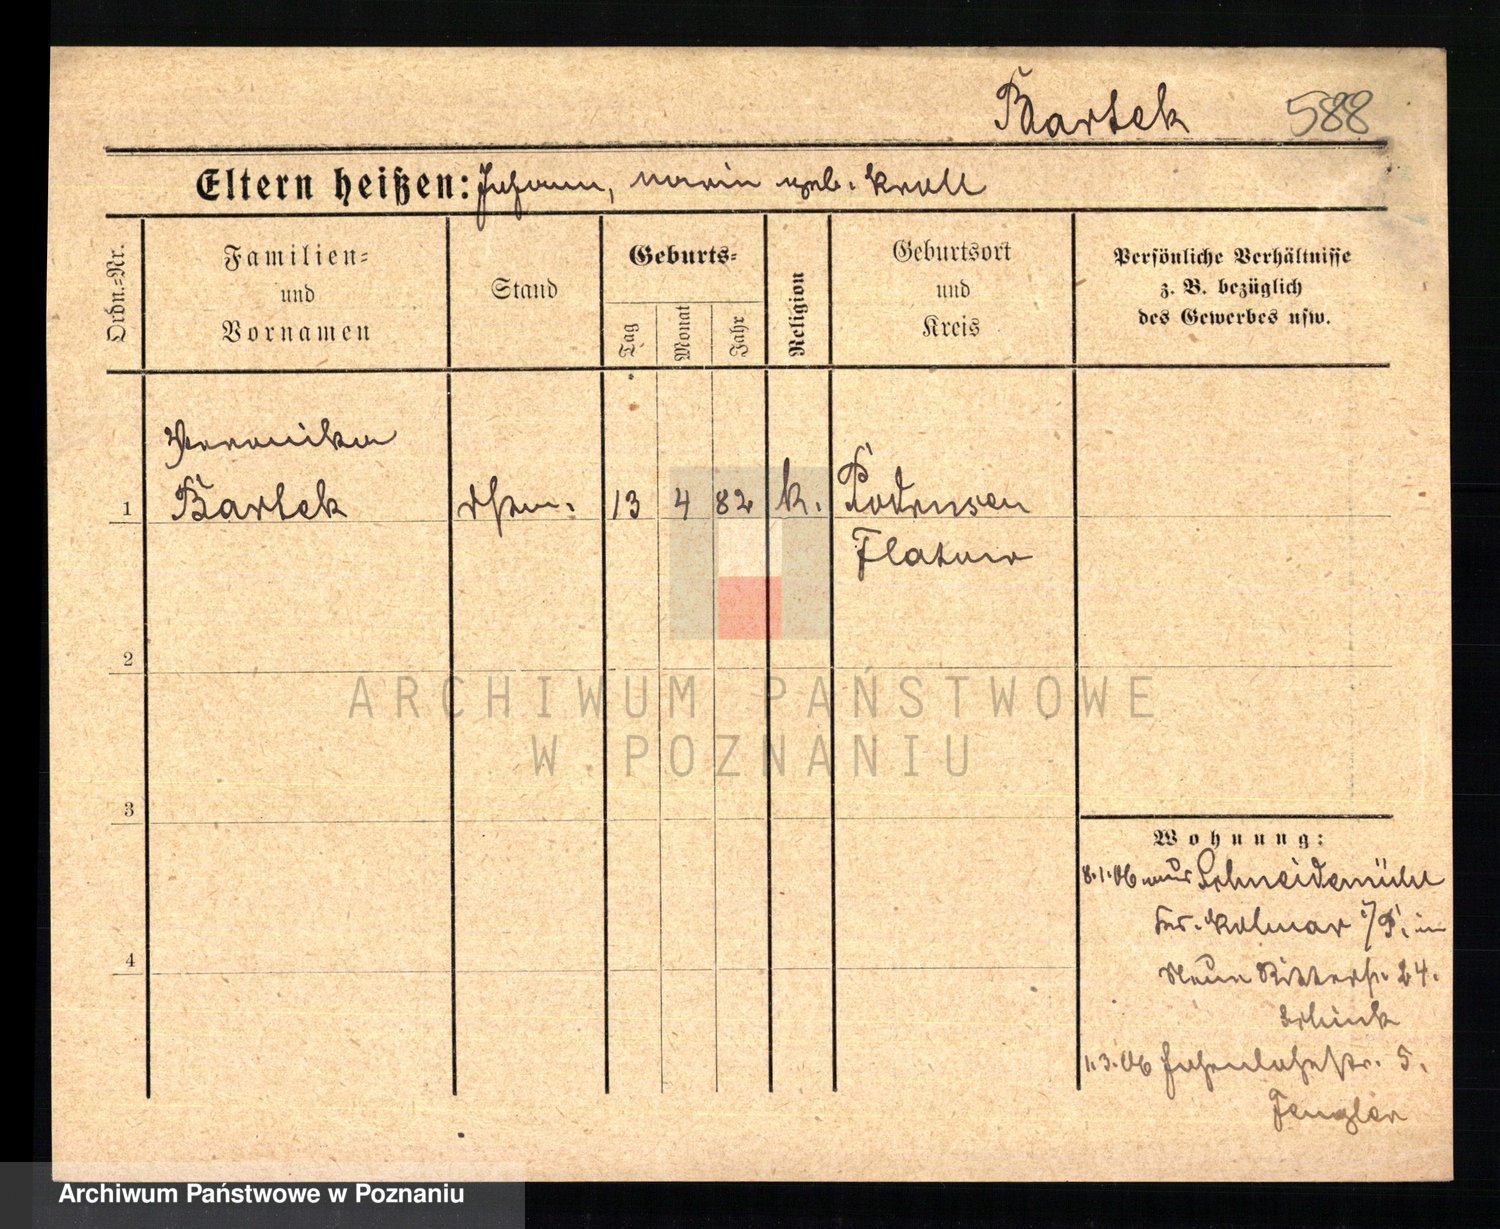 Bartek 588
Eltern heißen: Johann, Maria geb. Kroll
Ordn.-Nr.
Familien-
und
Vornamen
Stand
Geburts-
Tag
Monat
Jahr
Religion
Geburtsort
und
Kreis
Persönliche Verhältnisse
z. B. bezüglich
des Gewerbes usw.
Veronika
1 Bartek 13 4 82 k. Podrusen
Flatow
2
3
4
Wohnung:
8.1.06 aus Schneidemühl
Kr. Kolmar i/P. in
Neue Ritterstr. 24.
Schink
1.3.06 Hohenlohestr. 5.
Fengler
ARCHIWUM PAŃSTWOWE
W POZNANIU
Archiwum Państwowe w Poznaniu